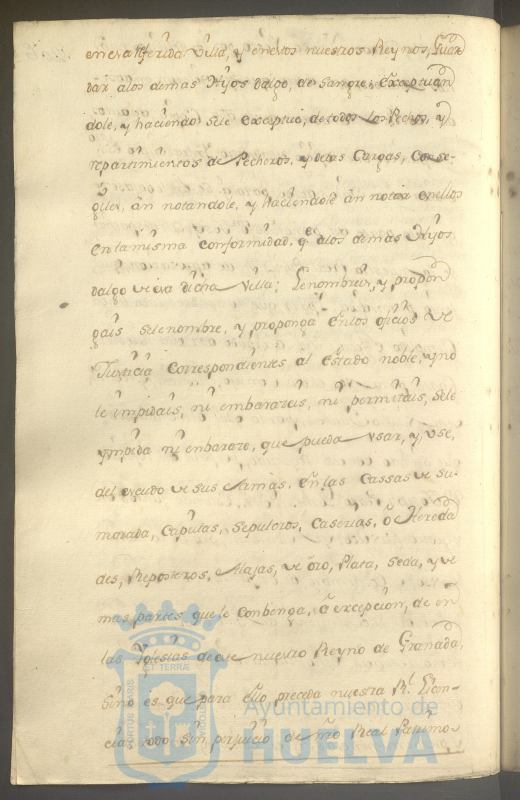 en esa referida Villa, y en estos nuestros Reynos, Guar
dar a los demas Hijos dalgo, de Sangre, exceptuan
dole, y haciendo sele exceptue, de todos los Pechos, y
repartimientos de Pecheros, y delas Cargas,
notandole, y haciendole notar en ellos
en la misma Conformidad, q.e alos demas Hijos
dalgo de esa dicha Villa; Lenombreis, y propon
gais selenombre, y proponga en los oficios de
Justicia Correspondientes al Estado noble, y no
le impidais, ni embarazeis, ni permitais, sele
ympida ni enbaraze, que pueda vsar, y vse,
del escudo de sus Armas, en las Cassas de su
morada, Capillas, Sepulcros, Caserias, o Hereda
des, Reposteros, Alajas, de oro, Plata, Seda, y de
mas partes que le Conbenga, a excepcion, de en
las Yglesias de ese nuestro Reyno de Granada,
Sino es que para ello preceda nuestra R.l Lizen-
cia, todo sin perjuicio de nr̃o Real Patrimo
PORTUS MARIS
ET TERRÆ
CUSTODIA
Ayuntamiento de
HUELVA